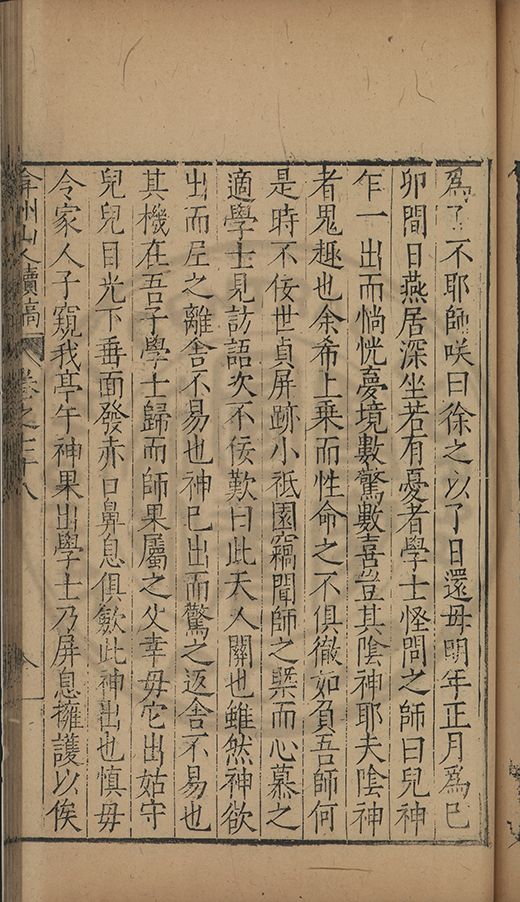 為了不耶師咲曰徐之以了日還毋明年正月為巳
卯間日燕居深坐若有憂者學士怪問之師曰兒神
乍一出而惝恍憂境數驚數喜豈其陰神耶夫陰神
者鬼趣也余希上乗而性命之不俱徹如負吾師何
是時不佞世貞屏跡小祇園竊聞師之槩而心慕之
適學士見訪語次不佞歎曰此天人關也雖然神欲
出而之離舍不易也神已出而驚之返舍不易也
其機在吾子學士歸而師果屬之父幸毋它出姑守
兒兒目光下垂面發赤口鼻息俱歛此神出也慎毋
令家人子窺我亭午神果出學士乃屏息擁護以俟
弇州山人續稿 卷之七十八